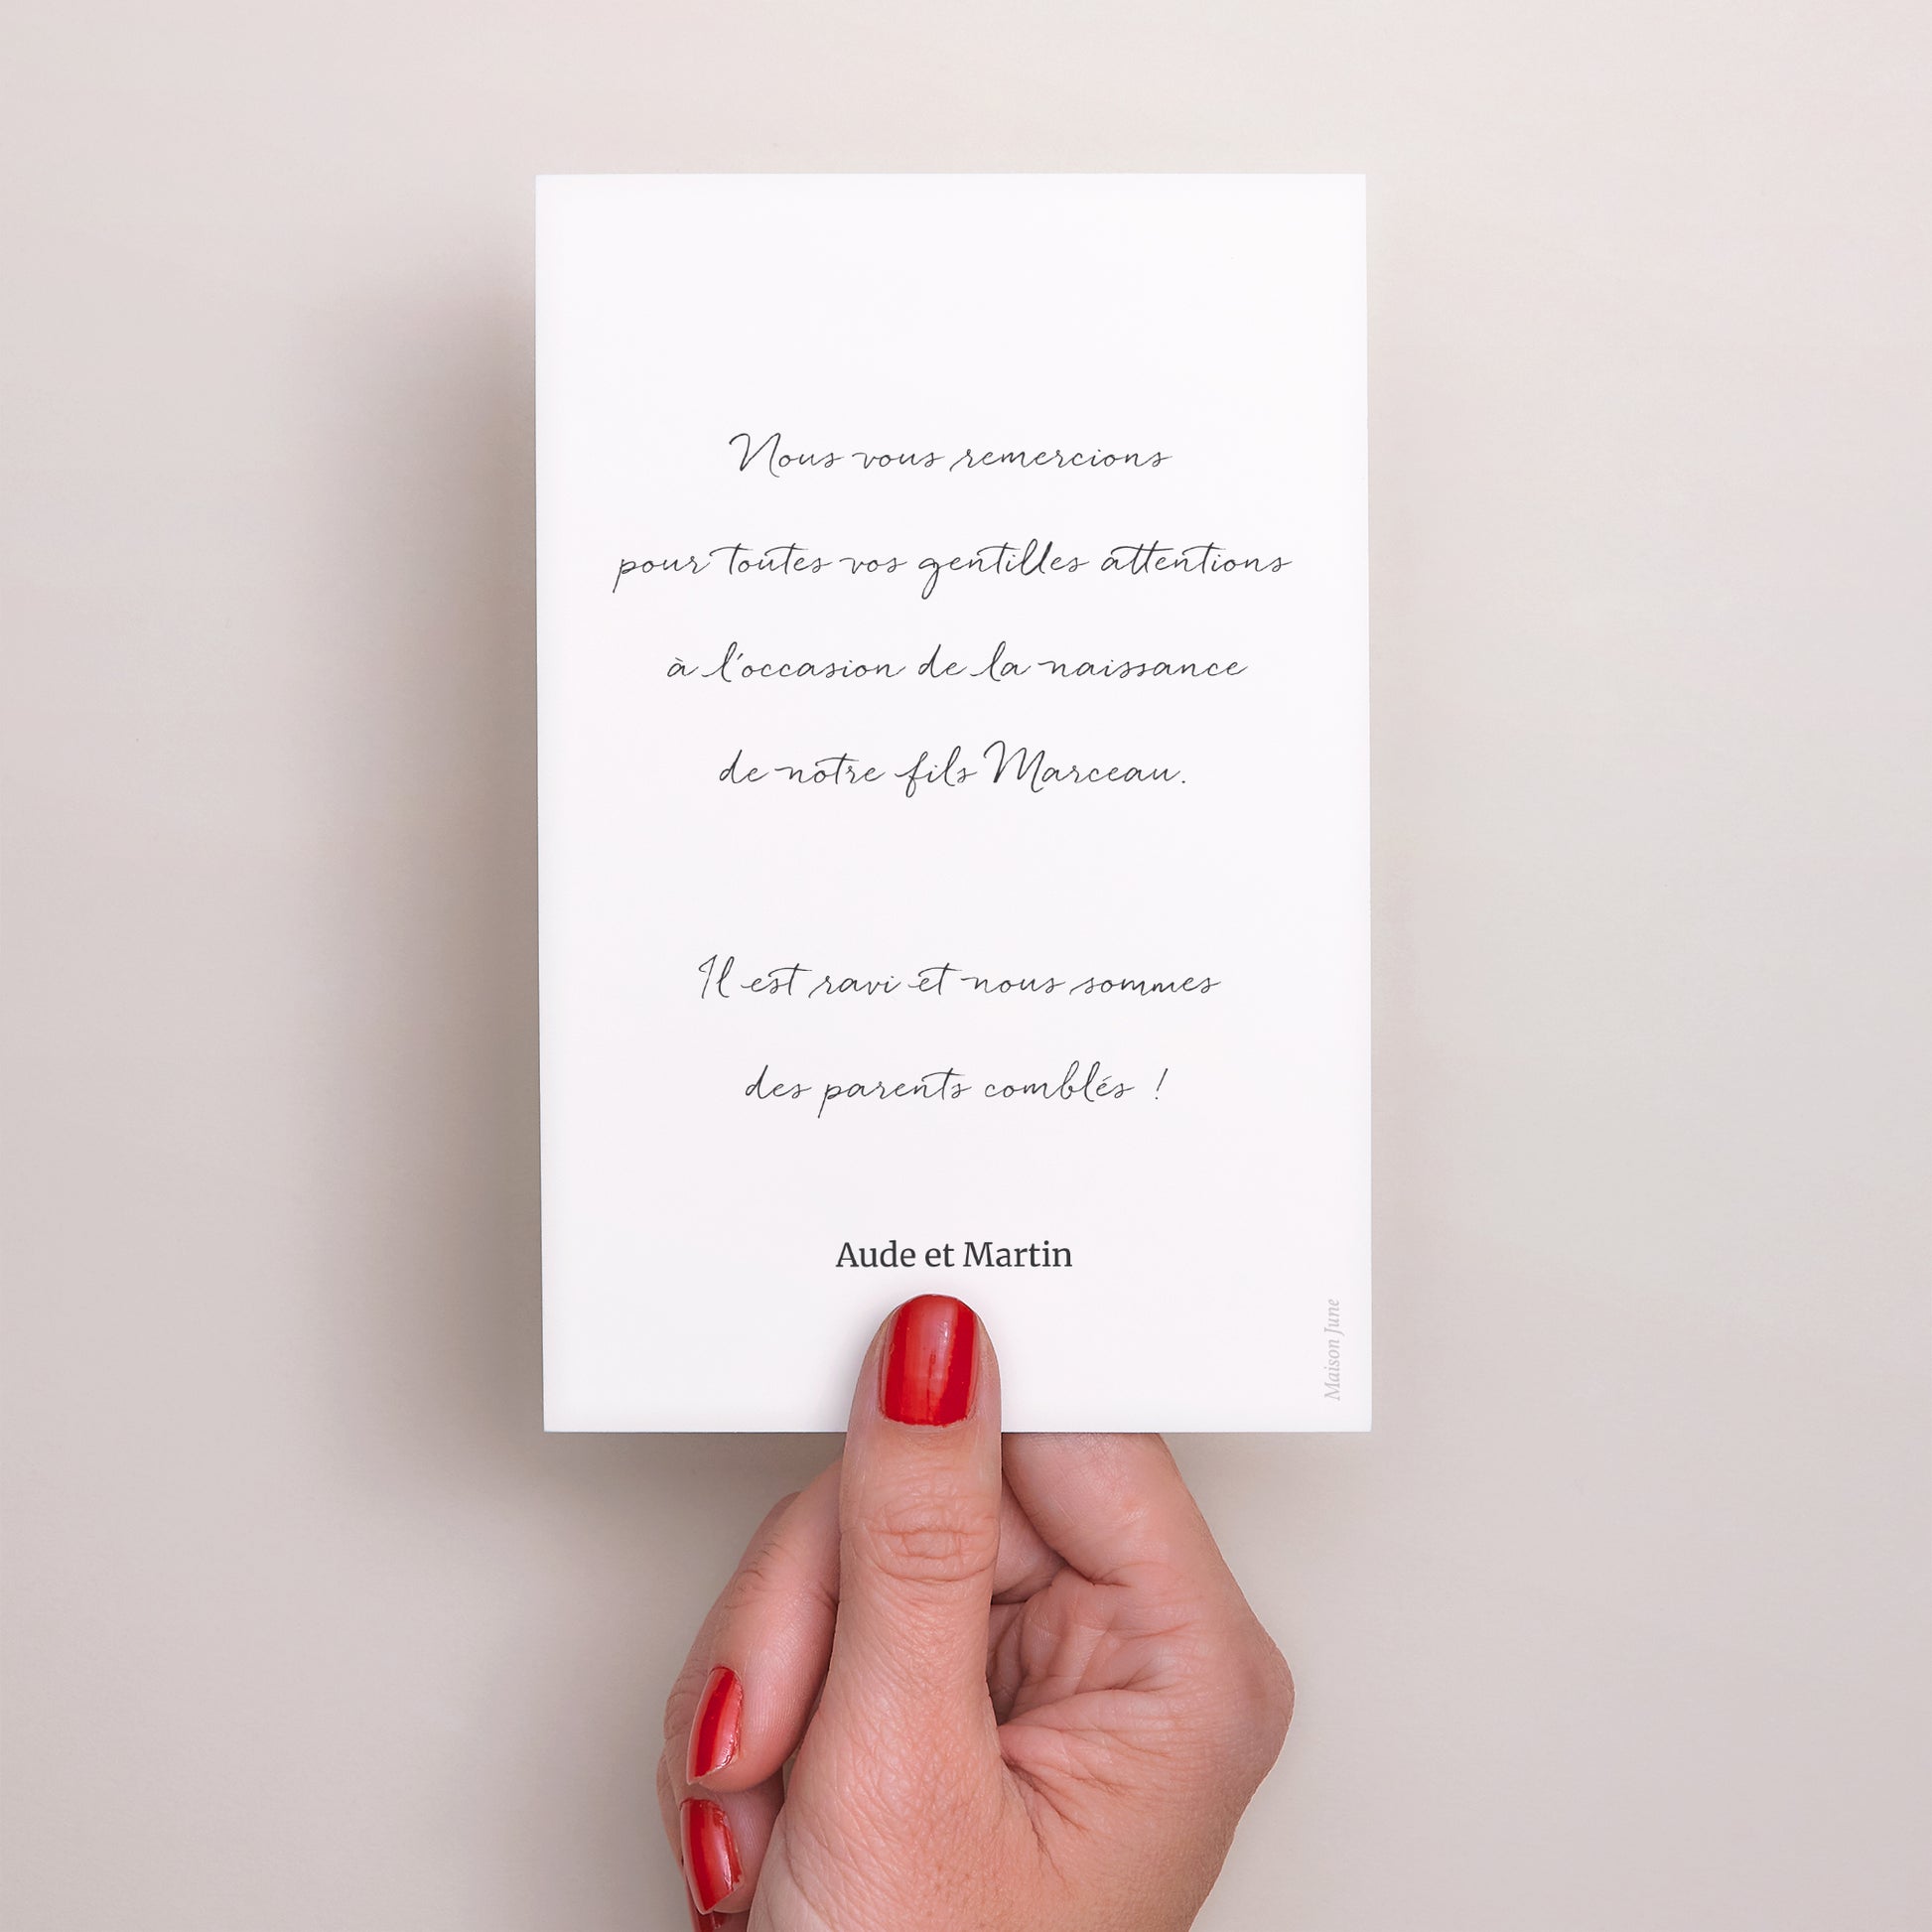 Nous vous remercions
pour toutes vos gentilles attentions
à l'occasion de la naissance
de notre fils Marceau.
Il est ravi et nous sommes
des parents comblés !
Aude et Martin
Maison June